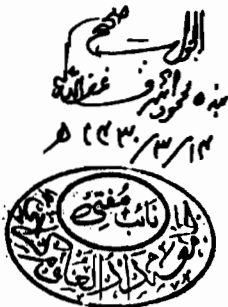 الجواب صحیح
بندہ محمود اشرف غفراللہ لہ
۱۴/۳/۱۴۳۰ ھ
نائب مفتی
جامعہ دارالعلوم کراچی